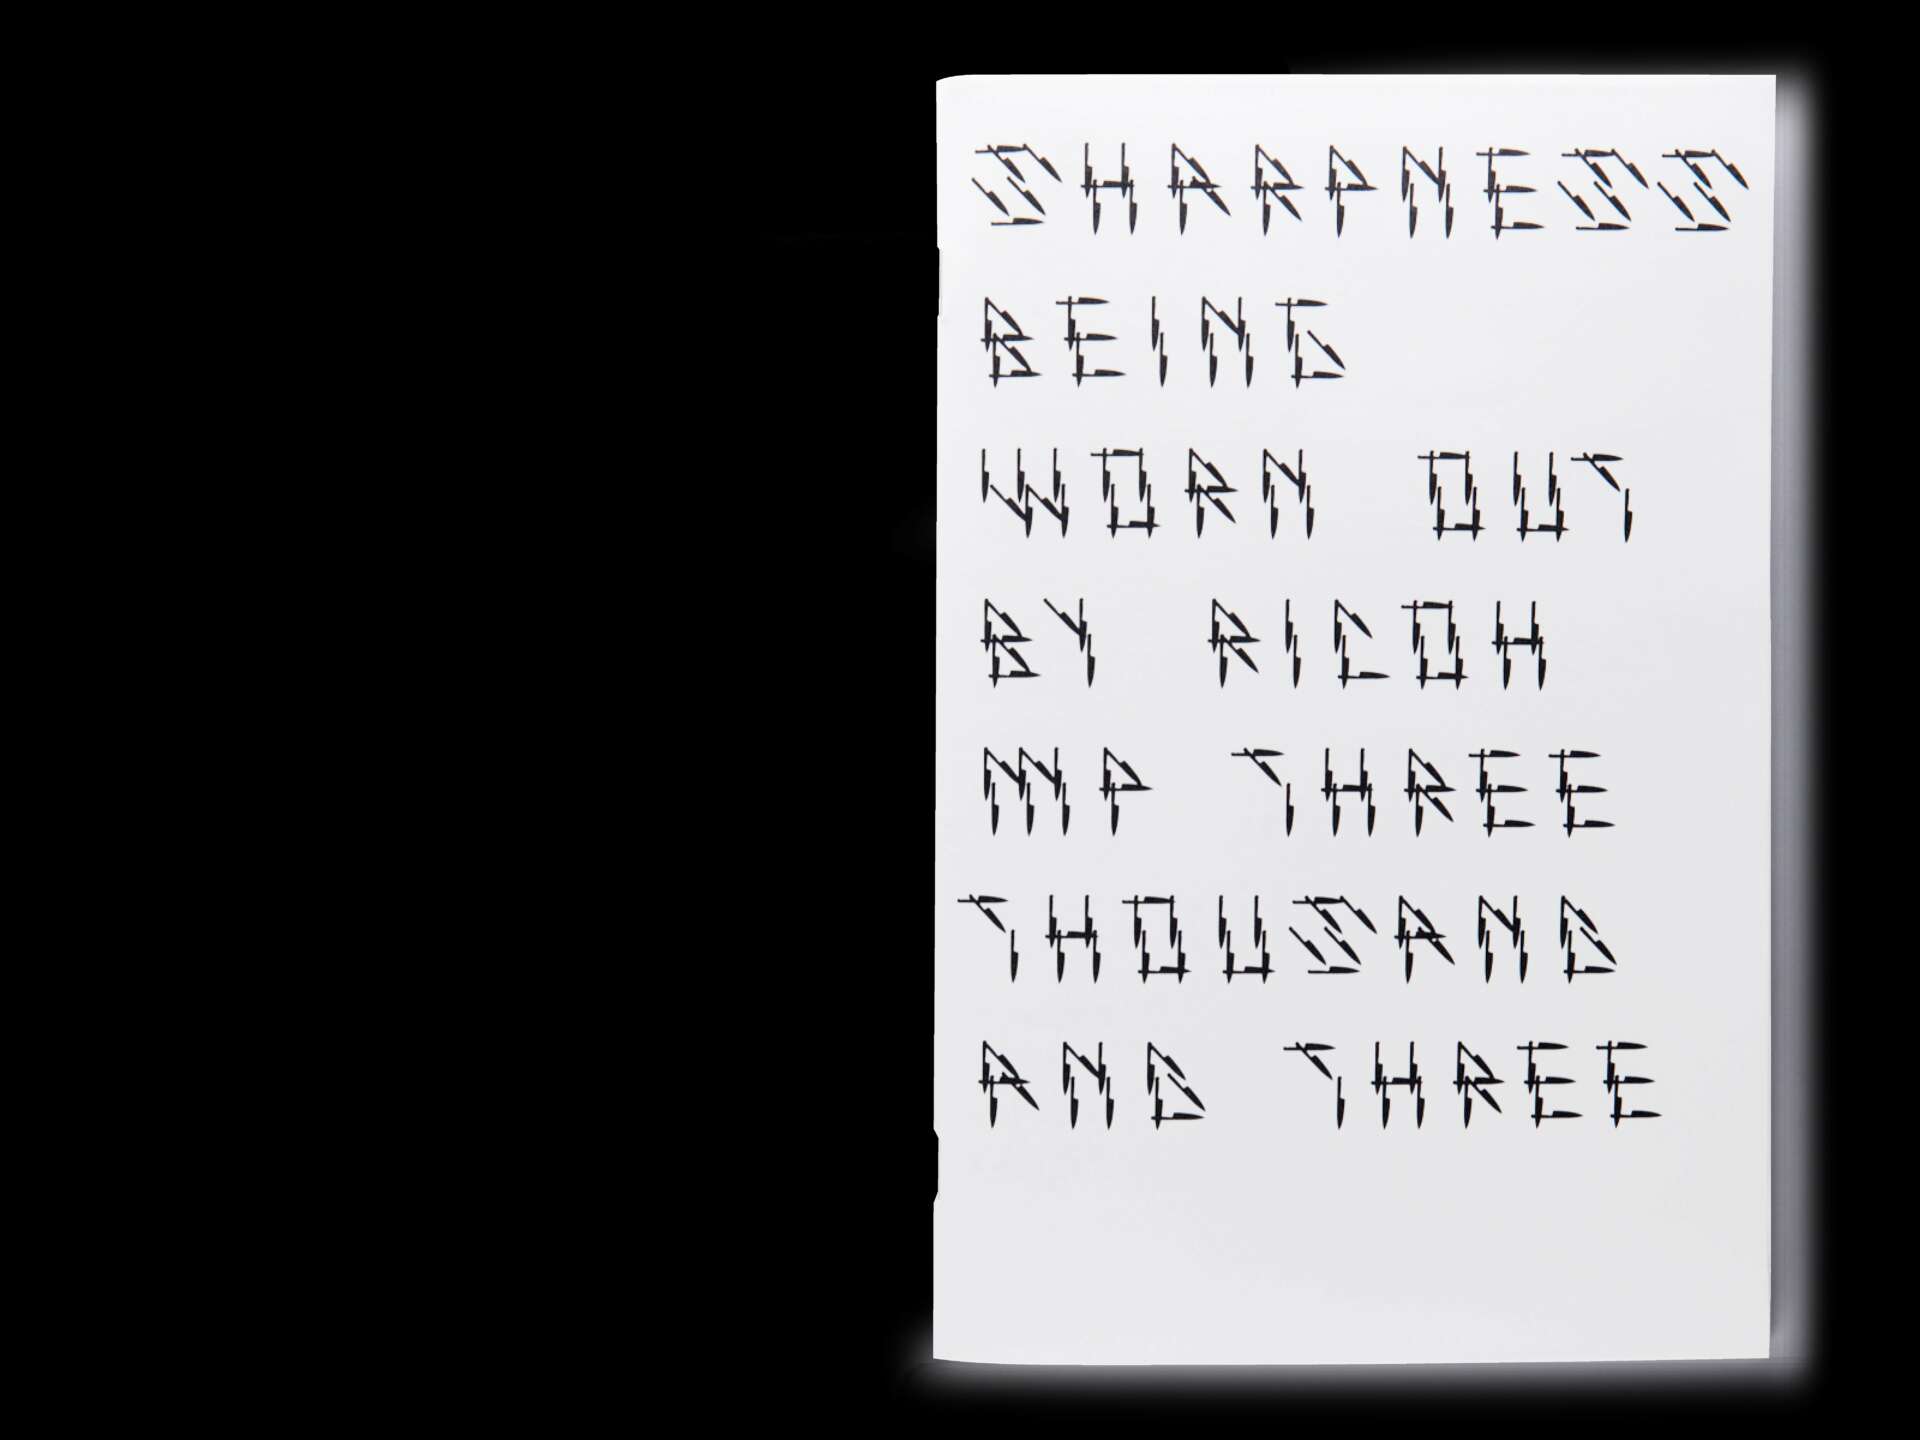 SHARPNESS
BEING
WORN OUT
BY RICOH
MP THREE
THOUSAND
AND THREE